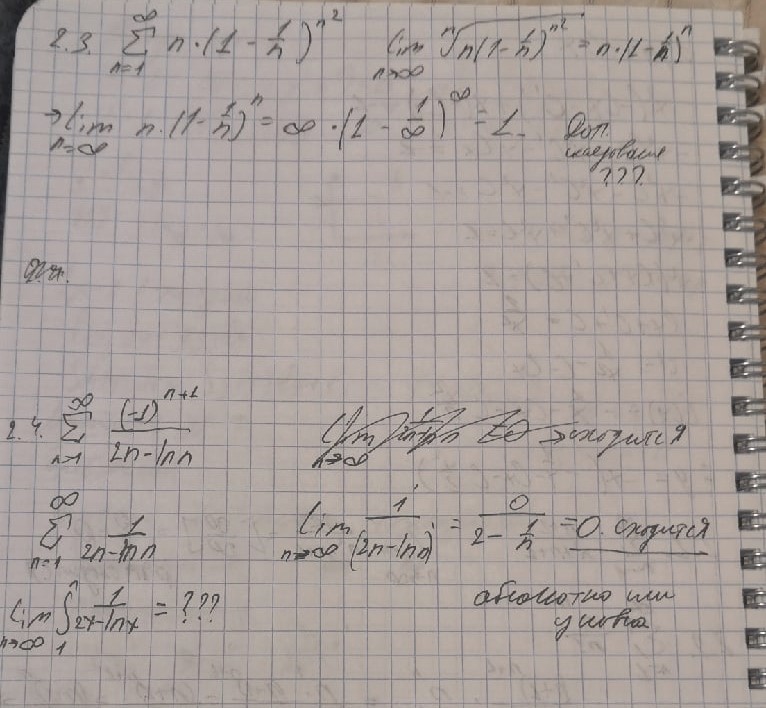 2.3. ∑_{n=1}^{∞} n·(1 - 1/n)^{n^2} lim_{n→∞} ⁿ√(n(1 - 1/n)^{n^2}) = n·(1 - 1/n)^n
→ lim_{n=∞} n·(1 - 1/n)^n = ∞·(1 - 1/∞)^∞ = 1. Доп.
???
2.4. ∑_{n=1}^{∞} (-1)^{n+1}/(2n - ln n) lim_{n→∞} сходится
∑_{n=1}^{∞} 1/(2n - ln n) lim_{n→∞} 1'/(2n - ln n)' = 0/(2 - 1/n) = 0. сходится
lim_{n→∞} ∫_1^n 1/(2x - ln x) = ??? абсолютно или
условна